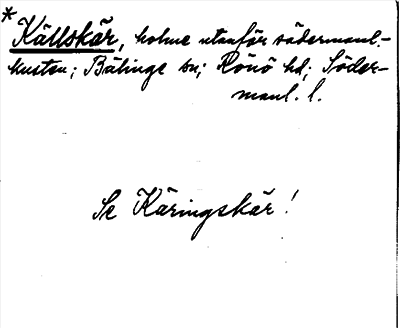 * Källskär, holme utanför södermanl.-
kusten; Bälinge sn; Rönö hd; Söder-
manl. l.
Se Käringskär!